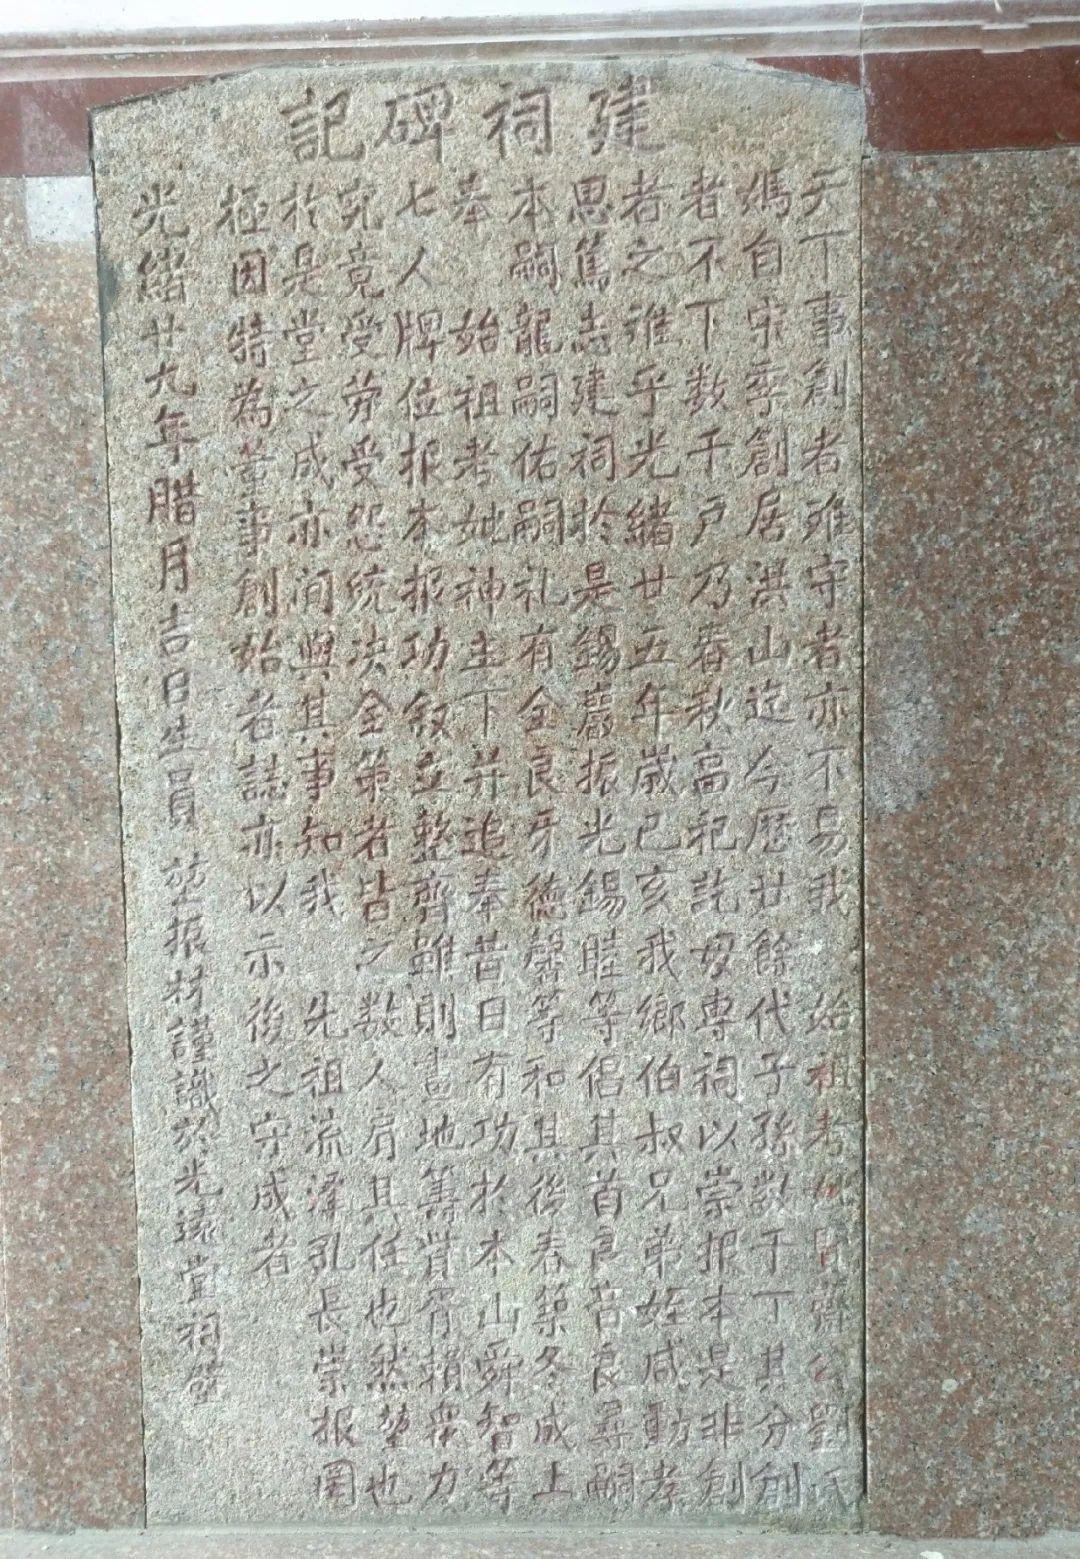 建祠碑記
天下事創者难守者亦不易我 始祖考妣
媽自宋季創居洪山迄今歷廿餘代子孫数千丁其分創
者不下数千戶乃春秋高祀訖毋專祠以崇报本是非創
者之难乎光緒廿五年歲己亥我鄉伯叔兄弟姪咸動孝
思篤志建祠於是錫嚴振光錫睦等倡其首良音良尋嗣
本嗣龍嗣佑嗣礼有全良牙德馨等和其後春築冬成上
奉 始祖考妣神主下并追奉昔日有功於本山舜智等
七人牌位报本报功叙立整齊雖則畫地籌貲胥賴衆力
究竟受劳受怨統决全策者皆之数人肩其任也然堃也
於是堂之成亦间與其事知我 先祖流澤孔長崇报罔
極因特為董事創始者誌亦以示後之守成者
光緒廿九年腊月吉日生員 堃振材謹識於光遠堂祠壁